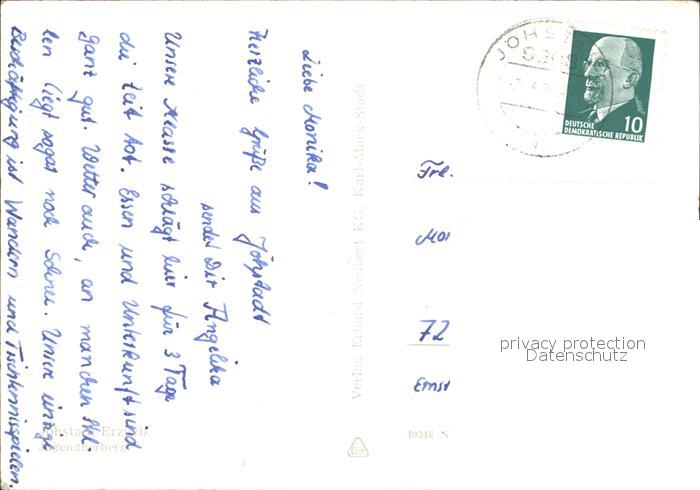 Liebe Monika!
Herzliche Grüße aus Jöhstadt
sendet Dir Angelika
Unsere Klasse schlägt hier für 3 Tage
die Zeit tot. Essen und Unterkunft sind
ganz gut. Wetter auch, an manchen Stel
len liegt sogar noch Schnee. Unsere einzige
Beschäftigung ist Wandern und Tischtennisspielen.
Jöhstadt Erzgeb.
Jugendherberge
Verlag Erhard Neubert KG, Karl-Marx-Stadt
10346 N
JÖHST
DEUTSCHE
DEMOKRATISCHE REPUBLIK
10
Frl.
Mon
72
Ernst
privacy protection
Datenschutz